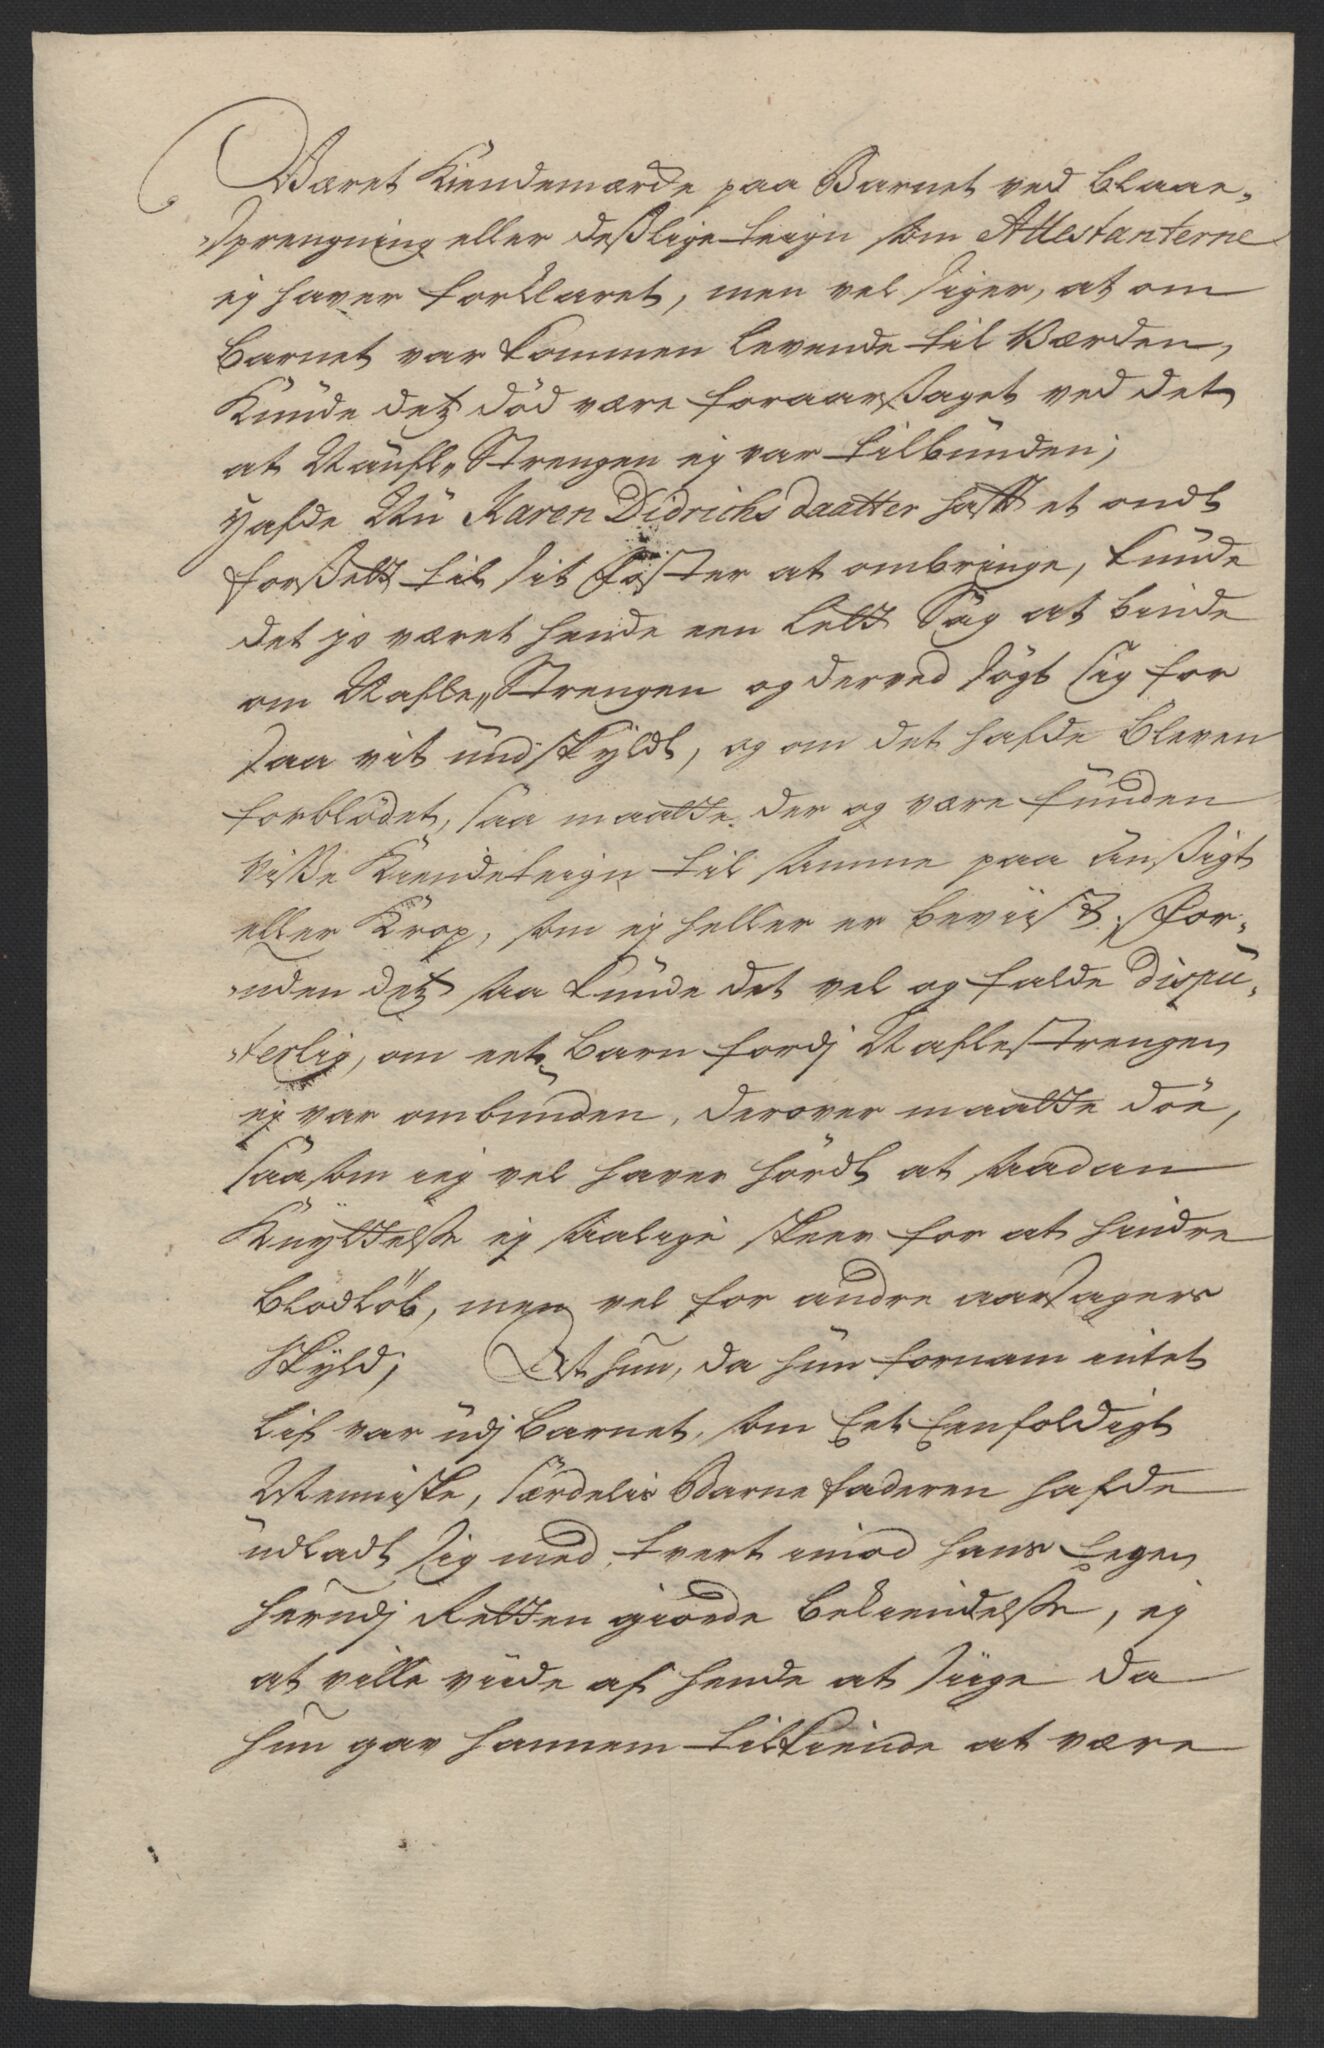 Været Kiendemærde paa Barnet ved blaae„
„sprengning eller deßlige teign som Attestanterne
ej haver forklaret, men vel siger, at om
barnet var kommen levende til Værden,
Kunde detz død være foraarßaget ved det
at Naufl„ Strengen ej var tilbunden;
Hafde Nu Karen Didrichsdaatter hafft et ondt
forßett til sit Foster at ombringe, kunde
det jo været hende een lett Sag at binde
om Nafle„ Strengen og derved søgt sig for
saa vit undskyldt, og om det hafde bleven
forblødet, saa maatte der og være funden
viße Kiendeteign til samme paa ansigt
eller Krop, som ej heller er beviist. For„
„uden detz saa kunde det vel og falde dispu„
„terlig, om eet Barn fordj Naflestrengen
ej var ombunden, derover maatte döe,
saasom jeg vel haver hørdt at saadan
Knyttelse ej saalige skeer for at hindre
blodløb, men vel for andre aarsagers
skyld; At hun, da hun fornam intet
lif var udj barnet, som Eet Eenfoldigt
Menniske, særdelis Barne faderen hafde
udladt sig med, tvert imod hans Eegen
herudj Retten giorde bekiendelse, ej
at ville viide af hende at siige da
hun gav hannem tilkiende at være